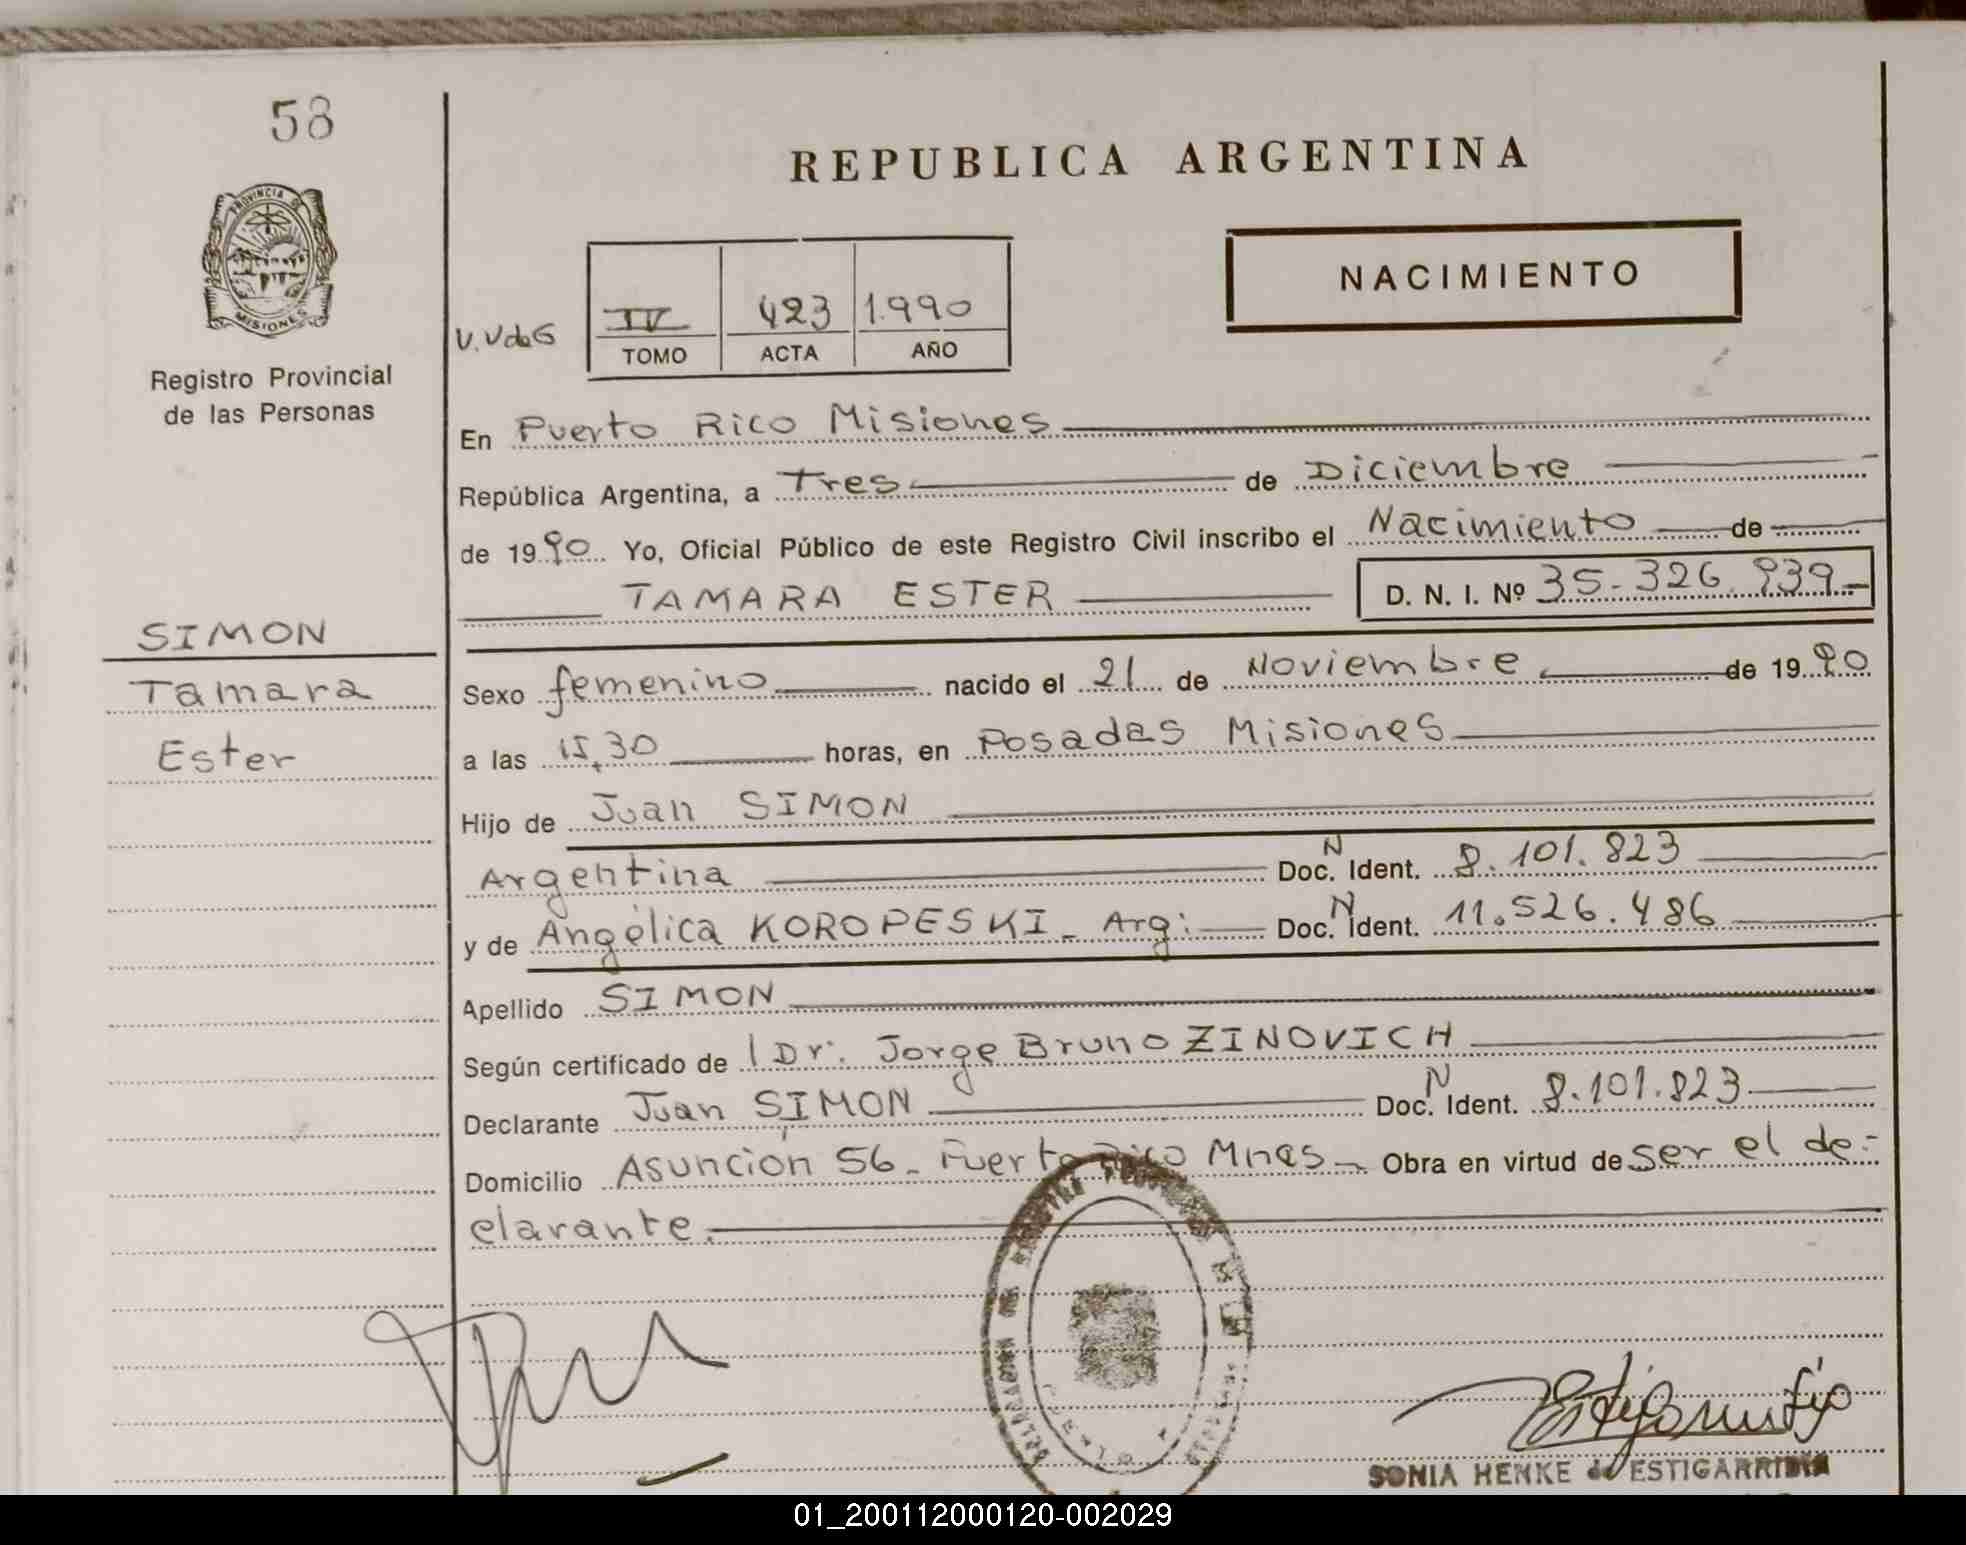 58
REPUBLICA ARGENTINA
PROVINCIA DE
MISIONES
NACIMIENTO
V.VdeG
IV 423 1.990
TOMO ACTA AÑO
Registro Provincial
de las Personas
En Puerto Rico Misiones
República Argentina, a Tres de Diciembre
de 1990 Yo, Oficial Público de este Registro Civil inscribo el Nacimiento de
TAMARA ESTER D. N. I. Nº 35-326.939-
SIMON
Tamara
Ester
Sexo femenino nacido el 21 de Noviembre de 1990
a las 15,30 horas, en Posadas Misiones
Hijo de Juan SIMON
Argentina Doc. N Ident. 8.101.823
y de Angélica KOROPESKI_ Arg: Doc. N Ident. 11.526.486
Apellido SIMON
Según certificado de l Dr. Jorge Bruno ZINOVICH
Declarante Juan SIMON Doc. N Ident. 8.101.823
Domicilio Asunción 56_ Puerto Rico Mnes_ Obra en virtud de ser el de-
clarante.
SONIA HENKE de ESTIGARRIBIA
01_200112000120-002029